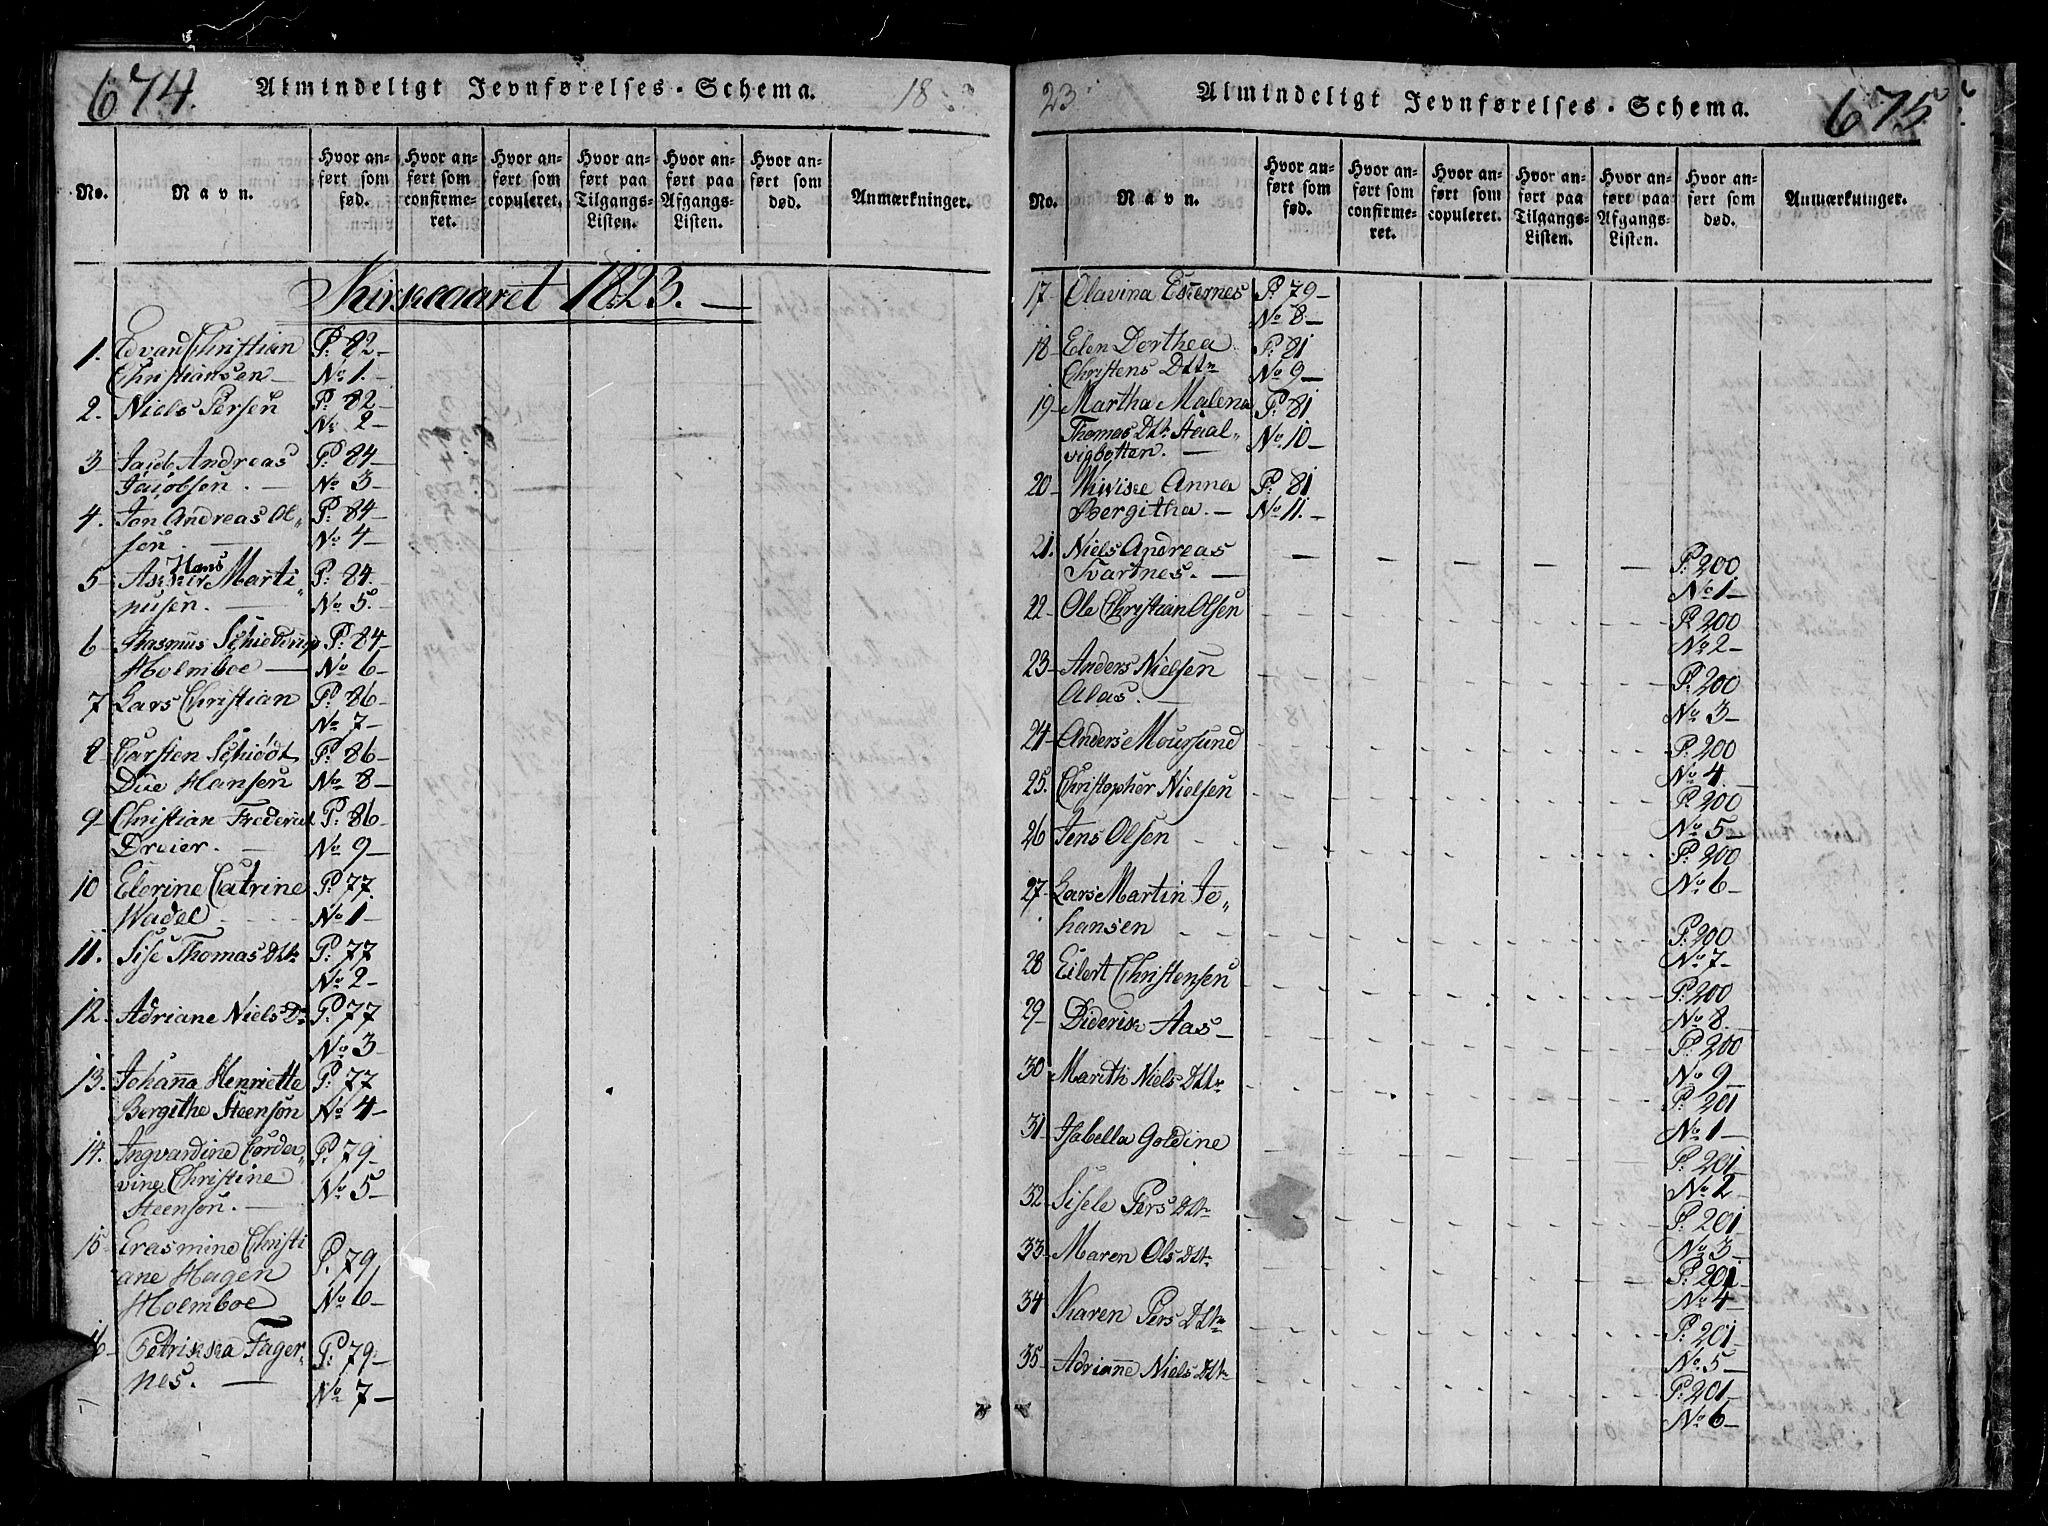 674.
Almindeligt Jevnførelses-Schema.
18
No.
Navn.
Hvor anført som fød.
Hvor anført som confirmeret.
Hvor anført som copuleret.
Hvor anført paa Tilgangs-Listen.
Hvor anført paa Afgangs-Listen.
Hvor anført som død.
Anmærkninger.
Kirkeaaret 1823.
1. Edvard Christian P: 82
Christiansen No 1.
2. Niels Persen P: 82
No 2
3 Jacob Andreas P: 84
Jacobsen. No 3
4. Jon Andreas Ol„ P: 84
sen. No 4
Hans
5 Marti„ P: 84.
nusen. No 5.
6 Rasmus Schielderup P: 84
Holmboe No 6
7 Lars Christian P: 86
No 7
8 Carsten Schiødt P: 86
Due Hansen No 8
9 Christian Frederik P: 86
Dreier. No 9
10 Elerine Catrine P: 77.
Wadel No 1
11. Sise Thomas Dtr P: 77
No 2
12. Adriane Niels Dr P: 77
No 3
13. Johanna Henriette P: 77
Bergithe Steenson No 4
14. Ingvardine Corde„ P: 79
vine Christine No 5
Steenson.
15 Erasmine Christi
ane Hagen P. 79
Holmboe No 6
16 Petrikka Fager„ P: 79
nes. No 7
23
Almindeligt Jevnførelses-Schema.
675
No.
Navn.
Hvor anført som fød.
Hvor anført som confirmeret.
Hvor anført som copuleret.
Hvor anført paa Tilgangs-Listen.
Hvor anført paa Afgangs-Listen.
Hvor anført som død.
Anmærkninger.
17 Olavina P: 79
No 8
18 Elen Dorthea P: 81
Christens Dttr No 9
19 Martha Malena P: 81
Thomas Dtt. No. 10
vigbotten.
20 Anna P: 81
Bergitha. No 11.
21. Niels Andreas P: 200
Svartnes. No 1
22 Ole Christian Olsen P 200
No 2
23 Anders Nielsen P: 200
Alas. No 3
24 Anders Moursund P: 200
No 4.
25. Christopher Nielsen P: 200
No 5
26 Jens Olsen P: 200
No 6
27 Lars Martin Jo„
hansen P: 200
No 7
28 Eilert Christensen P: 200
No 8.
29 Diderik Aas P: 200
No 9
30 Marith Niels Dttr P: 201
No 1
31 Isabella Goldine P: 201
No 2
32 Sisele Pers Dtr P: 201
No 3
33 Maren Ols Dtr. P: 201
No 4
34 Karen Pers Dtr P: 201
No 5
35 Adrianne Niels Dtr P: 201
No 6